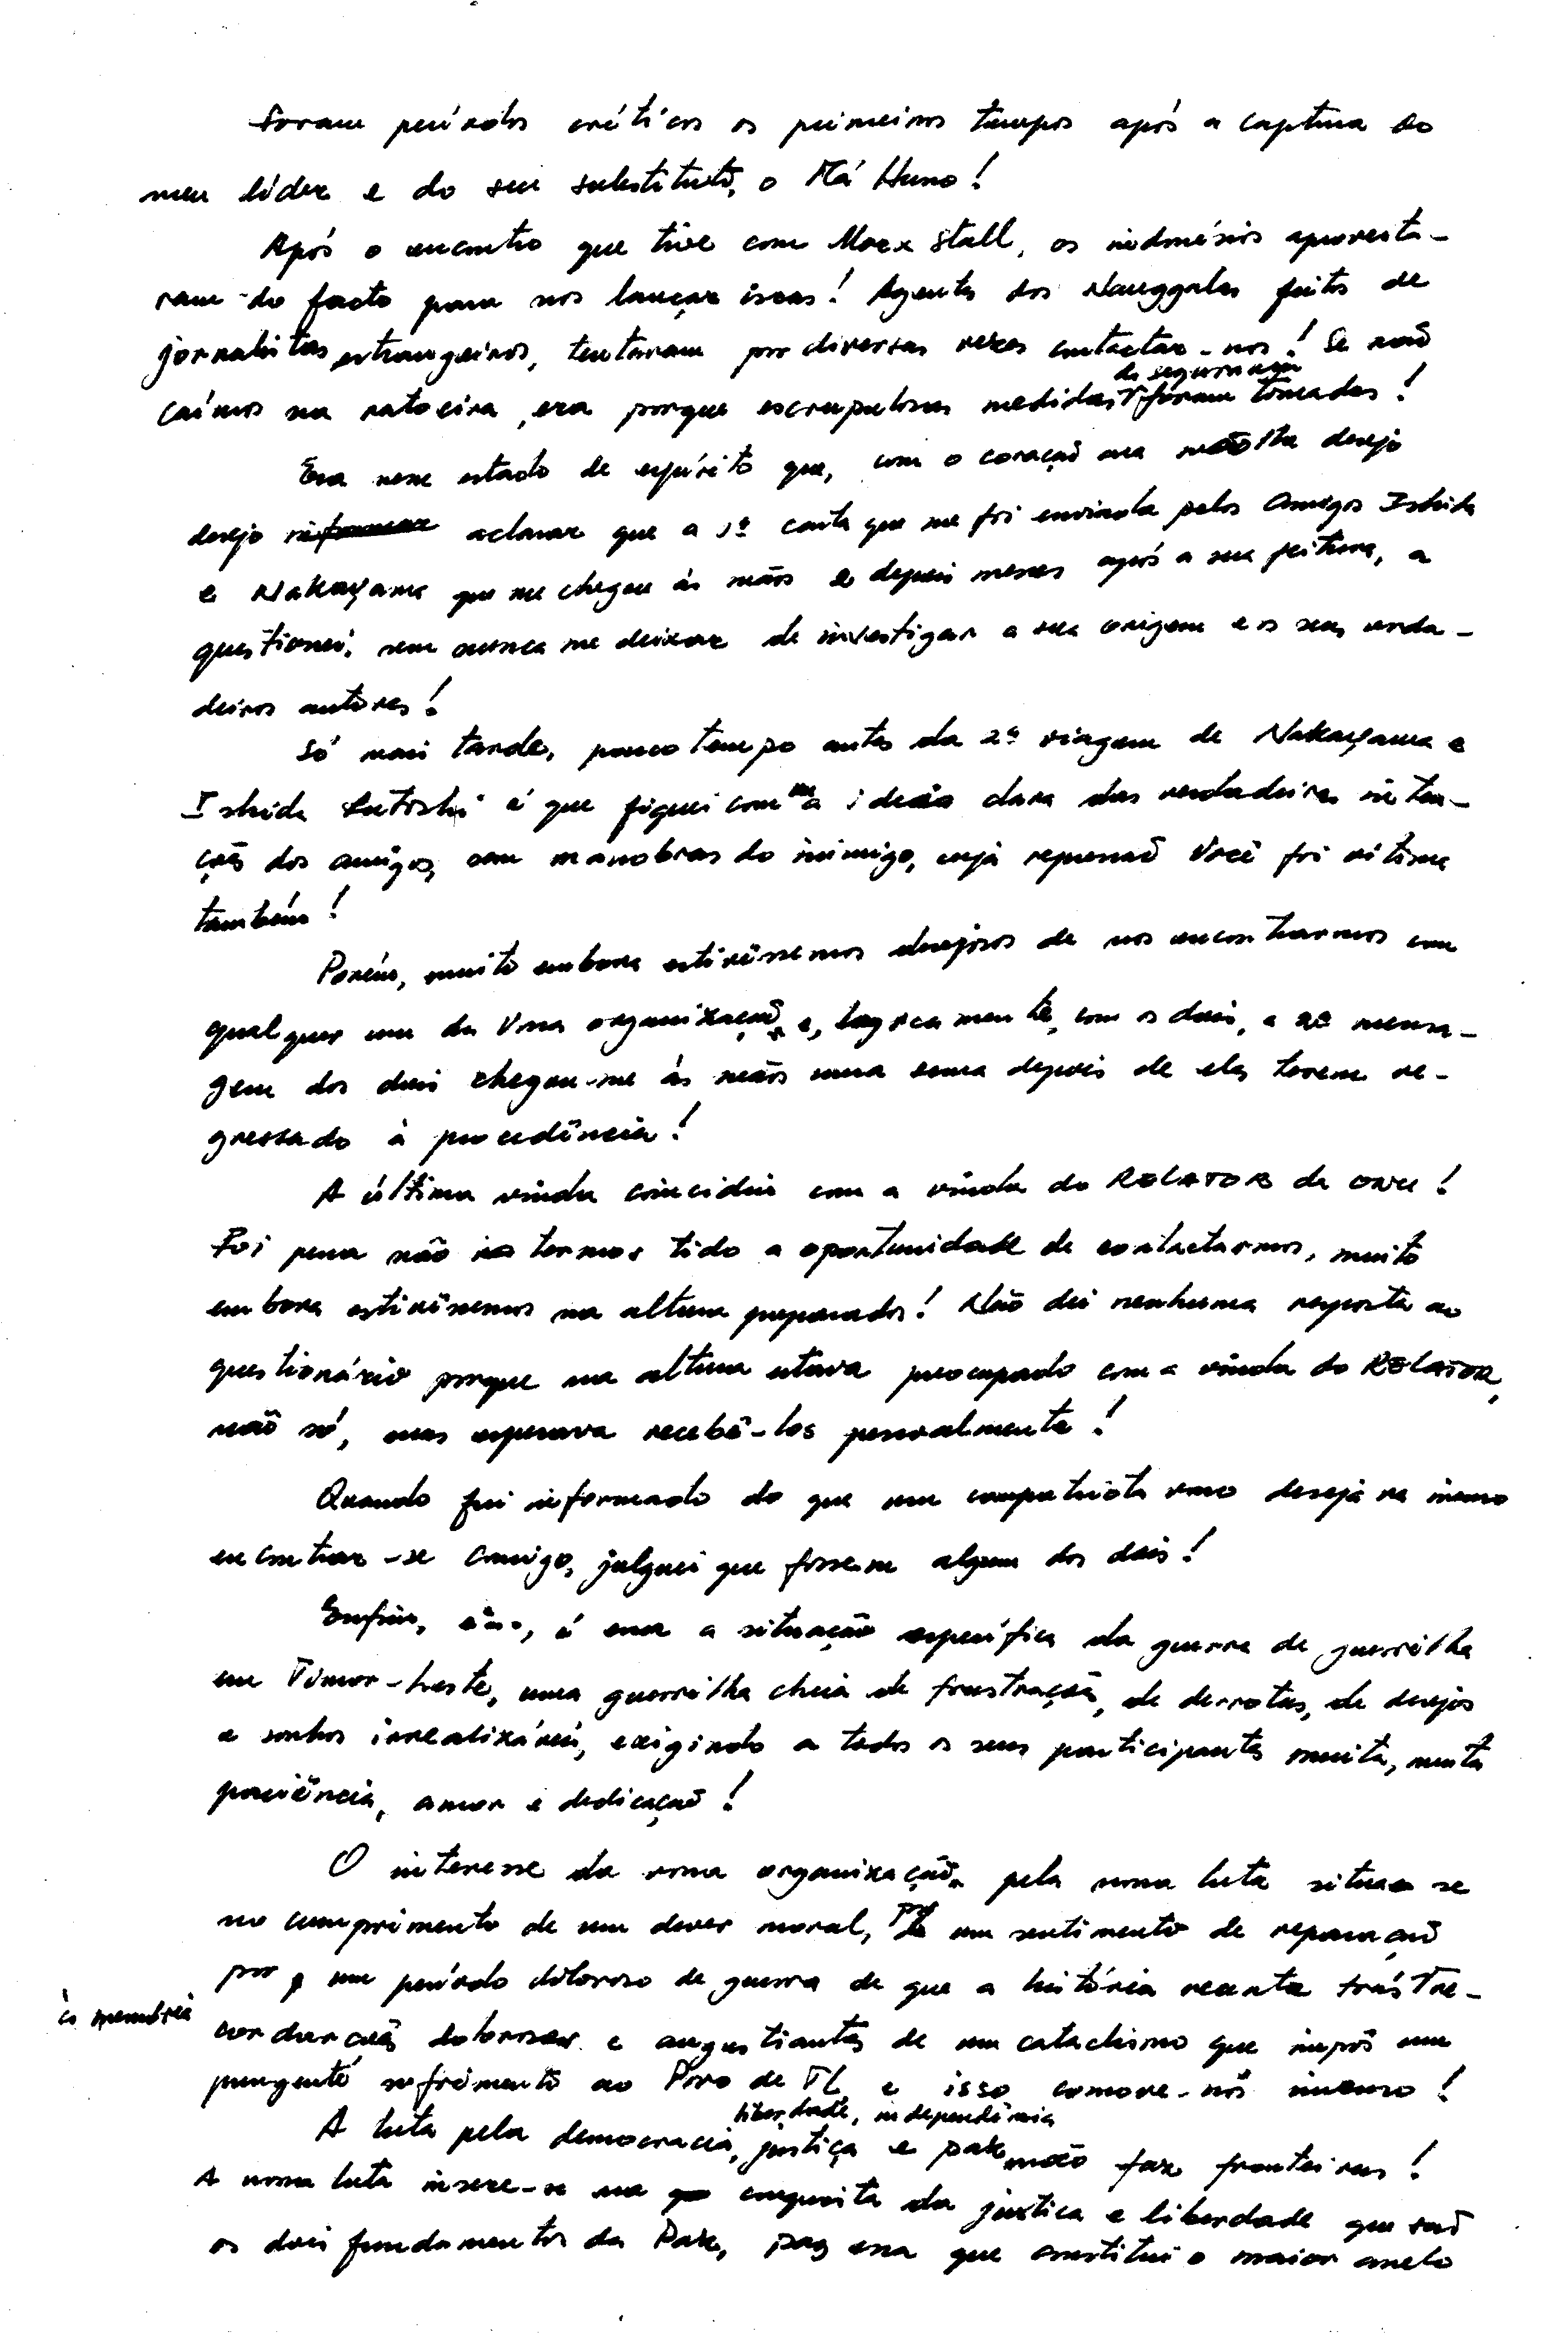 foram períodos críticos os primeiros tempos após a captura do
meu líder e do seu substituto, o Má Huno!
Após o encontro que tive com Max Stall, os indonésios aproveita-
ram-do facto para nos lançar iscas! Agentes dos Nanggalas feitos de
jornalistas estrangeiros, tentaram por diversas vezes contactar-nos! Se não
caímos na ratoeira, era porque escrupulosas medidas de segurança foram tomadas!
Era nesse estado de espírito que, com o coração na mão lhe desejo
desejo aclarar que a 1ª carta que me foi enviada pelos Amigos Ishida
e Nakayama que me chegou às mãos e depois meses após a sua feitura, a
questionei, sem nunca me deixar de investigar a sua origem e os seus verda-
deiros autores!
Só mais tarde, pouco tempo antes da 2ª viagem de Nakayama e
Ishida Satoshi é que fiquei com uma ideia clara das verdadeiras inten-
ções dos amigos, sem manobras do inimigo, cuja repressão Você foi vítima
também!
Porém, muito embora estivéssemos desejosos de nos encontrarmos com
qualquer um da Vossa organização, e, logicamente, com os dois, a 2ª mensa-
gem dos dois chegou-me às mãos uma semana depois de eles terem re-
gressado à procedência!
A última vinda coincidiu com a vinda do RELATOR da ONU!
Foi pena não termos tido a oportunidade de contactarmos, muito
embora estivéssemos na altura preparados! Não dei nenhuma resposta ao
questionário porque na altura estava preocupado com a vinda do RELATOR,
não só, mas esperava recebê-los pessoalmente!
Quando fui informado do que um compatriota vosso desejava imenso
encontrar-se comigo, julguei que fossem algum dos dois!
Enfim, é essa a situação específica da guerra de guerrilha
em Timor-Leste, uma guerrilha cheia de frustrações, de derrotas, de desejos
e sonhos irrealizáveis, exigindo a todos os seus participantes muita, muita
paciência, amor e dedicação!
O interesse da vossa organização pela nossa luta situa se
no cumprimento de um dever moral, por um sentimento de reparação
por um período doloroso de guerra de que a história recente trás
à memória recordações dolorosas e angustiantes de um cataclismo que impôs um
pungente sofrimento ao Povo de TL e isso comove-nos imenso!
A luta pela democracia, liberdade, independência justiça e paz não faz fronteiras!
A nossa luta insere-se na conquista da justiça e liberdade que são
os dois fundamentos da Paz, paz essa que constitui o maior anelo